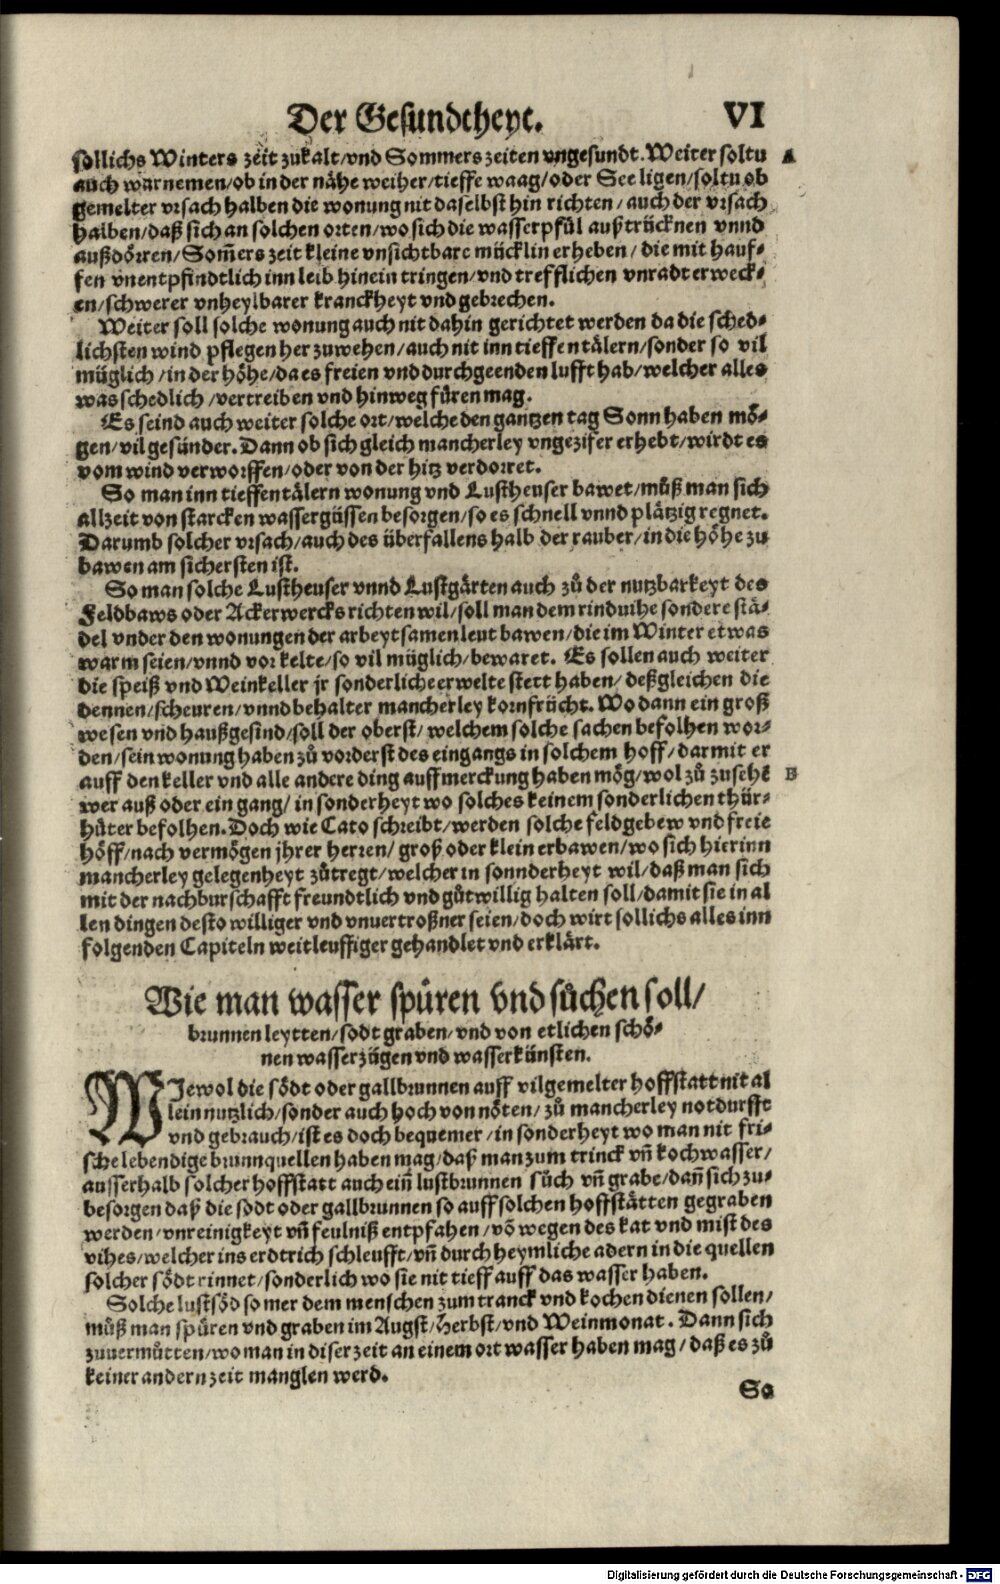 Der Gesundtheyt. VI
sollichs Winters zeit zu kalt/vnd Sommers zeiten vngesundt. Weiter soltu A
auch warnemen/ob in der nähe weiher/tieffe waag/oder See ligen/soltu ob
gemelter vrsach halben die wonung nit daselbst hin richten/auch der vrsach
halben/daß sich an solchen orten/wo sich die wasserpfül außtrücknen vnnd
außdörren/Som̃ers zeit kleine vnsichtbare mücklin erheben/die mit hauf-
fen vnentpfindtlich inn leib hinein tringen/vnd trefflichen vnradt erweck-
en/schwerer vnheylbarer kranckheyt vnd gebrechen.
Weiter soll solche wonung auch nit dahin gerichtet werden da die sched-
lichsten wind pflegen her zuwehen/auch nit inn tieffen tälern/sonder so vil
müglich/in der höhe/da es freien vnd durchgeenden lufft hab/welcher alles
was schedlich/vertreiben vnd hinweg füren mag.
Es seind auch weiter solche ort/welche den gantzen tag Sonn haben mö-
gen/vil gesünder. Dann ob sich gleich mancherley vngezifer erhebt/wirdt es
vom wind verworffen/oder von der hitz verdorret.
So man inn tieffen tälern wonung vnd Lustheuser bawet/můß man sich
allzeit von starcken wassergüssen besorgen/so es schnell vnnd plätzig regnet.
Darumb solcher vrsach/auch des überfallens halb der rauber/in die höhe zu
bawen am sichersten ist.
So man solche Lustheuser vnnd Lustgärten auch zů der nutzbarkeyt des
Feldbaws oder Ackerwercks richten wil/soll man dem rinduihe sondere stä-
del vnder den wonungen der arbeytsamen leut bawen/die im Winter etwas
warm seien/vnnd vor kelte/so vil müglich/bewaret. Es sollen auch weiter
die speiß vnd Weinkeller jr sonderliche erwelte stett haben/deßgleichen die
dennen/scheuren/vnnd behalter mancherley kornfrücht. Wo dann ein groß
wesen vnd haußgesind/soll der oberst/welchem solche sachen befolhen wor-
den/sein wonung haben zů vorderst des eingangs in solchem hoff/darmit er
auff den keller vnd alle andere ding auffmerckung haben mög/wol zů zusehẽ B
wer auß oder ein gang/in sonderheyt wo solches keinem sonderlichen thür-
hůter befolhen. Doch wie Cato schreibt/werden solche feldgebew vnd freie
höff/nach vermögen jhrer herren/groß oder klein erbawen/wo sich hierinn
mancherley gelegenheyt zůtregt/welcher in sonnderheyt wil/daß man sich
mit der nachburschafft freundtlich vnd gůtwillig halten soll/damit sie in al
len dingen desto williger vnd vnuertroßner seien/doch wirt sollichs alles inn
folgenden Capiteln weitleuffiger gehandlet vnd erklärt.
Wie man wasser spüren vnd sůchen soll/
brunnen leytten/sodt graben/vnd von etlichen schö-
nen wasserzügen vnd wasserkünsten.
WJewol die södt oder gallbrunnen auff vilgemelter hoffstatt nit al
lein nutzlich/sonder auch hoch von nöten/zů mancherley notdurfft
vnd gebrauch/ist es doch bequemer/in sonderheyt wo man nit fri-
sche lebendige brunnquellen haben mag/daß man zum trinck vñ kochwasser/
ausserhalb solcher hoffstatt auch eiñ lustbrunnen sůch vñ grabe/dañ sich zu-
besorgen daß die sodt oder gallbrunnen so auff solchen hoffstätten gegraben
werden/vnreinigkeyt vñ feulniß entpfahen/võ wegen des kat vnd mist des
vihes/welcher ins erdtrich schleufft/vñ durch heymliche adern in die quellen
solcher södt rinnet/sonderlich wo sie nit tieff auff das wasser haben.
Solche lustsöd so mer dem menschen zum tranck vnd kochen dienen sollen/
můß man spüren vnd graben im Augst/Herbst/vnd Weinmonat. Dann sich
zuuermůtten/wo man in diser zeit an einem ort wasser haben mag/daß es zů
keiner andern zeit manglen werd.
So
Digitalisierung gefördert durch die Deutsche Forschungsgemeinschaft - DFG